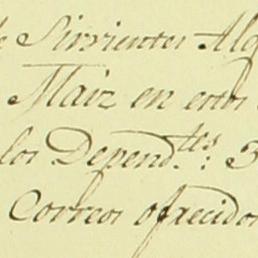 de Sirvientes Alg
Maiz en estos
los Depend.tes: 3
Correos ofrecidos